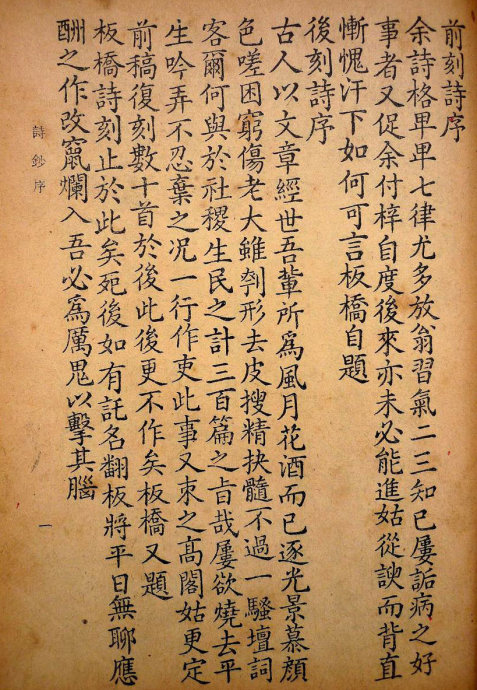 前刻詩序
余詩格卑卑七律尤多放翁習氣二三知己屢詬病之好
事者又促余付梓自度後來亦未必能進姑從諛而背直
慚愧汗下如何可言板橋自題
後刻詩序
古人以文章經世吾輩所爲風月花酒而已逐光景慕顏
色嗟困窮傷老大雖刳形去皮搜精抉髓不過一騷壇詞
客爾何與於社稷生民之計三百篇之旨哉屢欲燒去平
生吟弄不忍棄之况一行作吏此事又束之高閣姑更定
前稿復刻數十首於後此後更不作矣板橋又題
板橋詩刻止於此矣死後如有託名翻板將平日無聊應
酬之作改竄爛入吾必爲厲鬼以擊其腦
詩鈔序
一